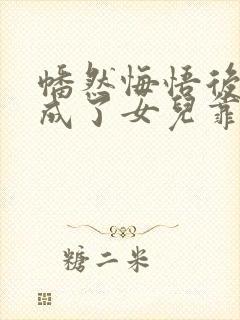 幡然悔悟後
成了女兒
糖二米